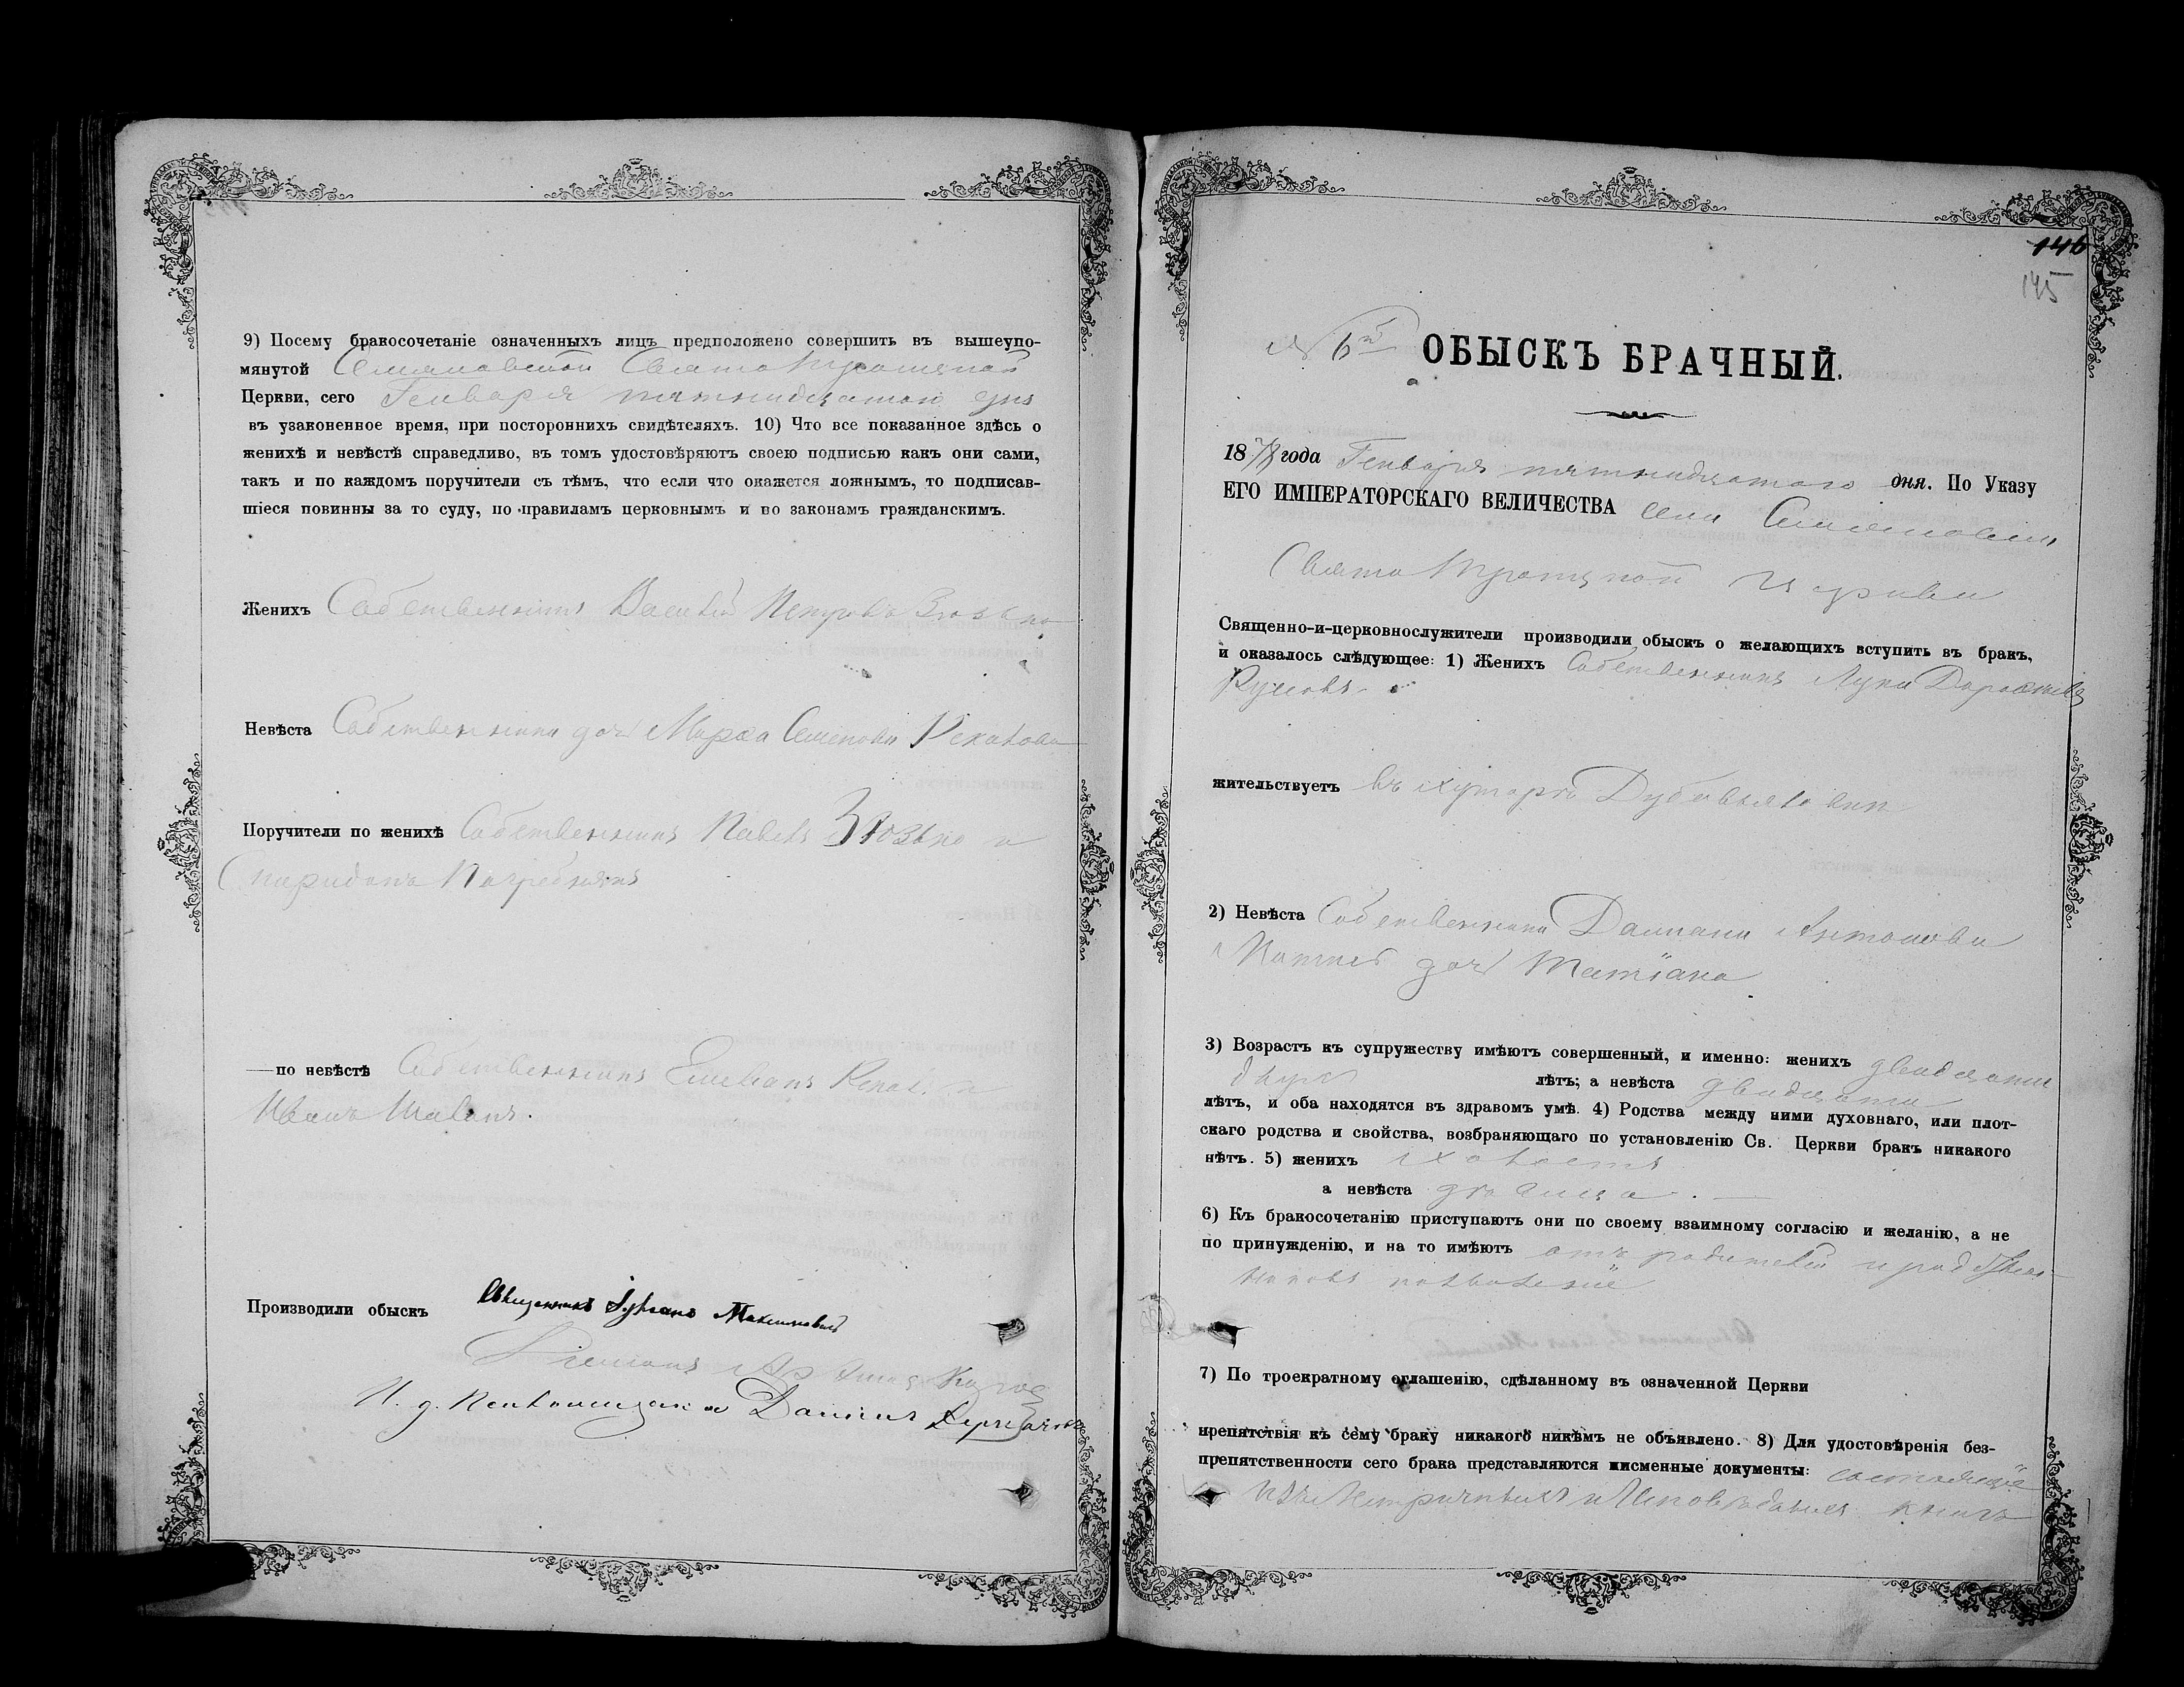 9) Посему бракосочетаніе означенныхъ лицъ предположено совершить въ вышеупо-
мянутой Свято Троицкой
Церкви, сего Генваря пятнадцатаго дня
въ узаконенное время, при постороннихъ свидѣтеляхъ. 10) Что все показанное здѣсь о
женихѣ и невѣстѣ справедливо, въ томъ удостовѣряютъ своею подписью какъ они сами,
такъ и по каждомъ поручители съ тѣмъ, что если что окажется ложнымъ, то подписав-
шіеся повинны за то суду, по правиламъ церковнымъ и по законамъ гражданскимъ.
Женихъ Собственникъ Василій Петровъ
Невѣста Собственника дочь Марфа Семенова
Поручители по женихѣ Собственникъ Павелъ и
Погребнякъ
—по невѣстѣ Собственникъ Емеліанъ
Иванъ
Производили обыскъ Священникъ Максимовичъ
И. д. Даніилъ
146
145
№ 6й ОБЫСКЪ БРАЧНЫЙ.
1878 года Генваря пятнадцатаго дня. По Указу
ЕГО ИМПЕРАТОРСКАГО ВЕЛИЧЕСТВА села
Свято Троицкой Церкви
Священно-и-церковнослужители производили обыскъ о желающихъ вступить въ бракъ,
и оказалось слѣдующее: 1) Женихъ Собственникъ Лука
жительствуетъ въ хуторѣ
2) Невѣста Собственника Антонова
дочь Татіана
3) Возрастъ къ супружеству имѣютъ совершенный, и именно: женихъ двадцати
двухъ лѣтъ; а невѣста двадцати
лѣтъ, и оба находятся въ здравомъ умѣ. 4) Родства между ними духовнаго, или плот-
скаго родства и свойства, возбраняющаго по установленію Св. Церкви бракъ никакого
нѣтъ. 5) женихъ холостъ
а невѣста дѣвица.
6) Къ бракосочетанію приступаютъ они по своему взаимному согласію и желанію, а не
по принужденію, и на то имѣютъ отъ родителей и родствен-
никовъ позволеніе
7) По троекратному оглашенію, сдѣланному въ означенной Церкви
препятствія къ сему браку никакого никѣмъ не объявлено. 8) Для удостовѣренія без-
препятственности сего брака представляются письменные документы:
изъ Метрическихъ и Исповѣдныхъ книгъ